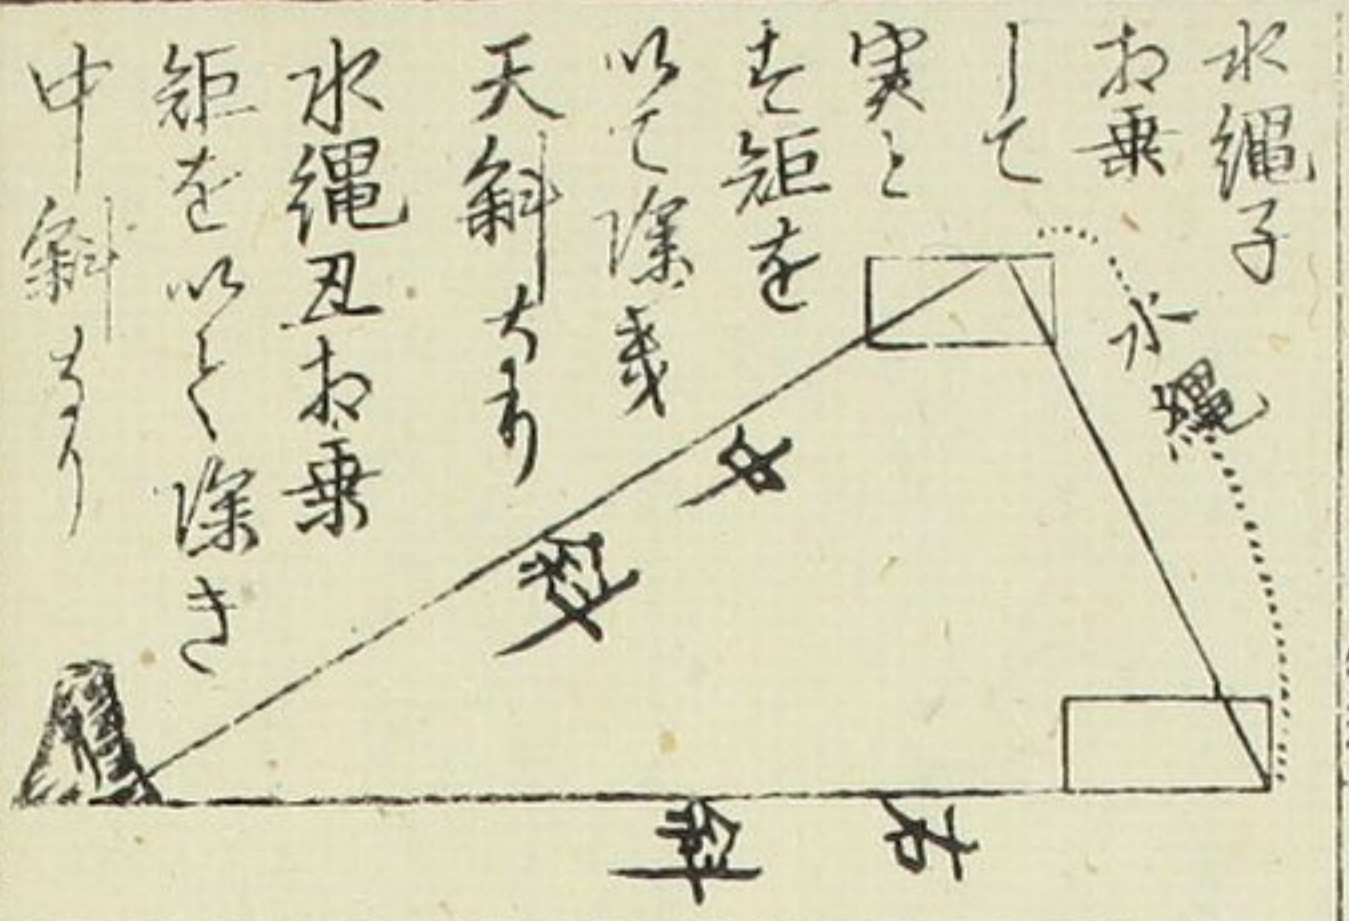 水縄子
相乗
して
実と
す矩を
以て除き
天斜なり
水縄丑相乗
矩を以て除き
中斜なり
水縄
中斜
斜